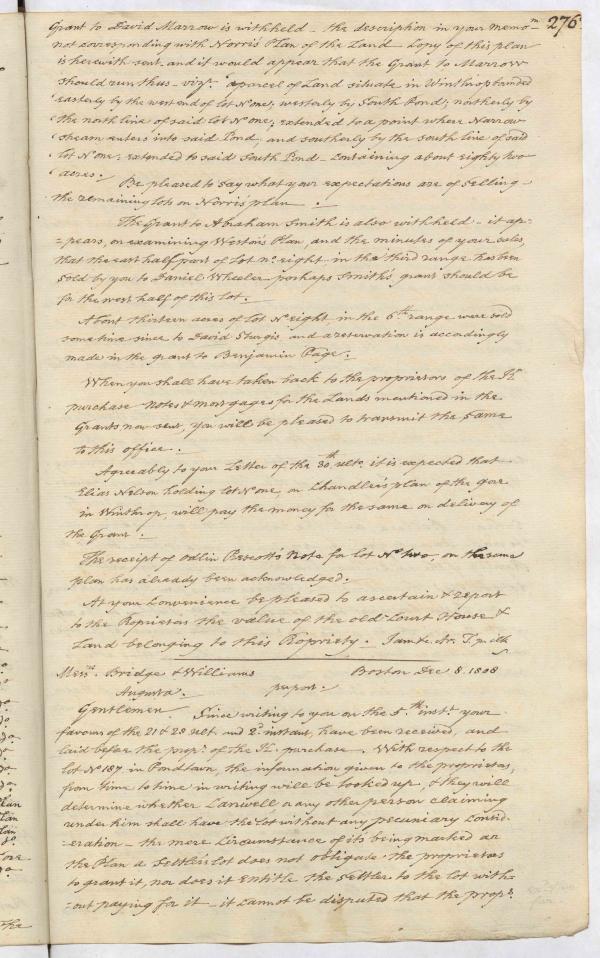 276
Grant to David Marrow is withheld – the description in your memom
not corresponding with Norris' Plan of the Land Copy of this plan
is herewith sent and it would appear that the Grant to Marrow
should run thus – vizt. a parcel of Land situate in Winthrop bounded
easterly by the west end of lot No one; westerly by South Pond; northerly by
the north line of said lot No one; extended to a point where Narrow
stream enters into said Pond, and southerly by the south line of said
lot No one; extended to said South Pond – containing about eighty two
acres.
Be pleased to say what your expectations are of selling
the remaining lots on Norris' plan.
The Grant to Abraham Smith is also withheld – it ap=
=pears, on examining Weston's Plan, and the minutes of your sales,
that the east half part of lot no. eight in the third range has been
sold by you to Daniel Wheeler perhaps Smith's grant should be
for the west half of this lot.
About thirteen acres of lot No eight, in the 6th range were sold
some time since to David Sturgis and a reservation is accordingly
made in the grant to Benjamin Page.
When you shall have taken back to the proprietors of the
purchase notes & mortgages for the Lands mentioned in the
Grants now sent, you will be pleased to transmit the same
to this office.
Agreeably to your Letter of the 30th ulto. it is expected that
Elias Nelson holding lot No one, on Chandler's plan of the gore
in Winthrop, will pay the money for the same on delivery of
the Grant.
The receipt of Odlin Prescott's Note for lot No two, on the same
plan has already been acknowledged.
At your convenience be pleased to ascertain & report
to the Proprietors the value of the old Court House &
Land belonging to this Propriety. I am &c.
Messrs. Bridge & Williams Boston Dec 8. 1808
Augusta. per post.
Gentlemen Since writing to you on the 5th inst. your
favours of the 21 & 28 ult. and 2d. instant, have been received, and
laid before the proprs. of the purchase. With respect to the
lot No 187. in Pondtown, the information given to the proprietors,
from time to time in writing will be looked up, & they will
determine whether Lanwell, or any other person claiming
under him shall have the lot without any pecuniary consid=
=eration – the mere circumstance of it's being marked on
the Plan a settler's lot does not obligate the proprietors
to grant it, nor does it entitle the settler to the lot with=
=out paying for it – it cannot be disputed that the propr.